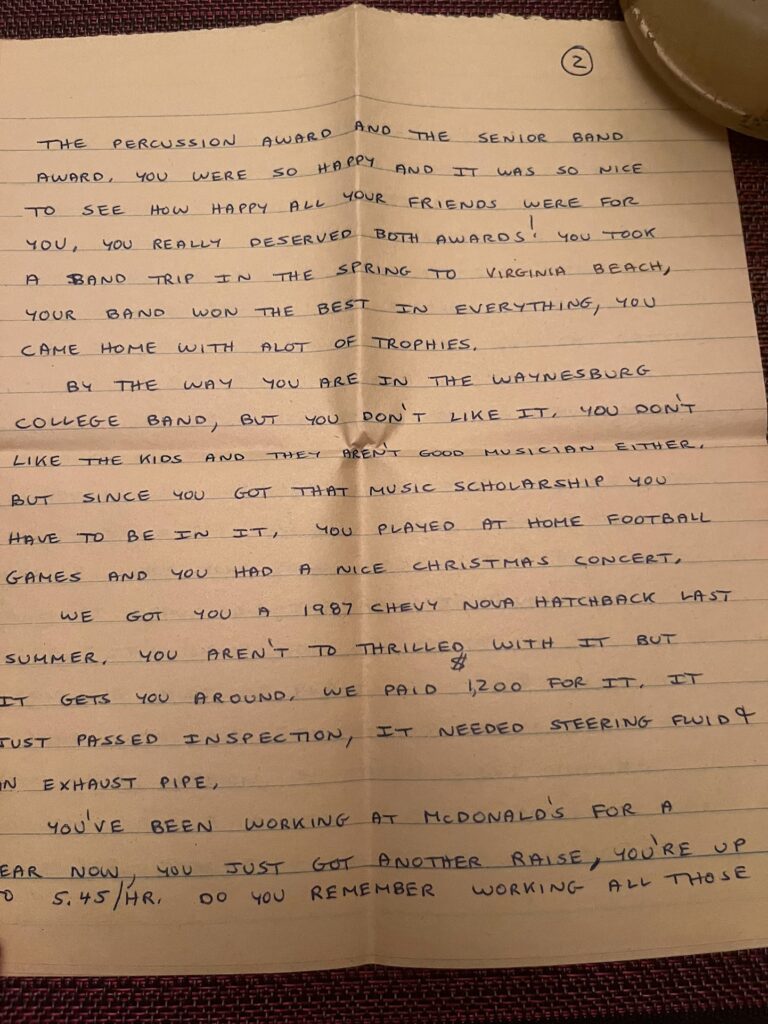 2
THE PERCUSSION AWARD AND THE SENIOR BAND
AWARD. YOU WERE SO HAPPY AND IT WAS SO NICE
TO SEE HOW HAPPY ALL YOUR FRIENDS WERE FOR
YOU, YOU REALLY DESERVED BOTH AWARDS! YOU TOOK
A BAND TRIP IN THE SPRING TO VIRGINIA BEACH,
YOUR BAND WON THE BEST IN EVERYTHING, YOU
CAME HOME WITH ALOT OF TROPHIES.
BY THE WAY YOU ARE IN THE WAYNESBURG
COLLEGE BAND, BUT YOU DON'T LIKE IT. YOU DON'T
LIKE THE KIDS AND THEY AREN'T GOOD MUSICIAN EITHER.
BUT SINCE YOU GOT THAT MUSIC SCHOLARSHIP YOU
HAVE TO BE IN IT, YOU PLAYED AT HOME FOOTBALL
GAMES AND YOU HAD A NICE CHRISTMAS CONCERT.
WE GOT YOU A 1987 CHEVY NOVA HATCHBACK LAST
SUMMER. YOU AREN'T TO THRILLED WITH IT BUT
IT GETS YOU AROUND. WE PAID $1,200 FOR IT. IT
JUST PASSED INSPECTION, IT NEEDED STEERING FLUID &
N EXHAUST PIPE,
YOU'VE BEEN WORKING AT McDONALD'S FOR A
EAR NOW, YOU JUST GOT ANOTHER RAISE, YOU'RE UP
O 5.45/HR. DO YOU REMEMBER WORKING ALL THOSE